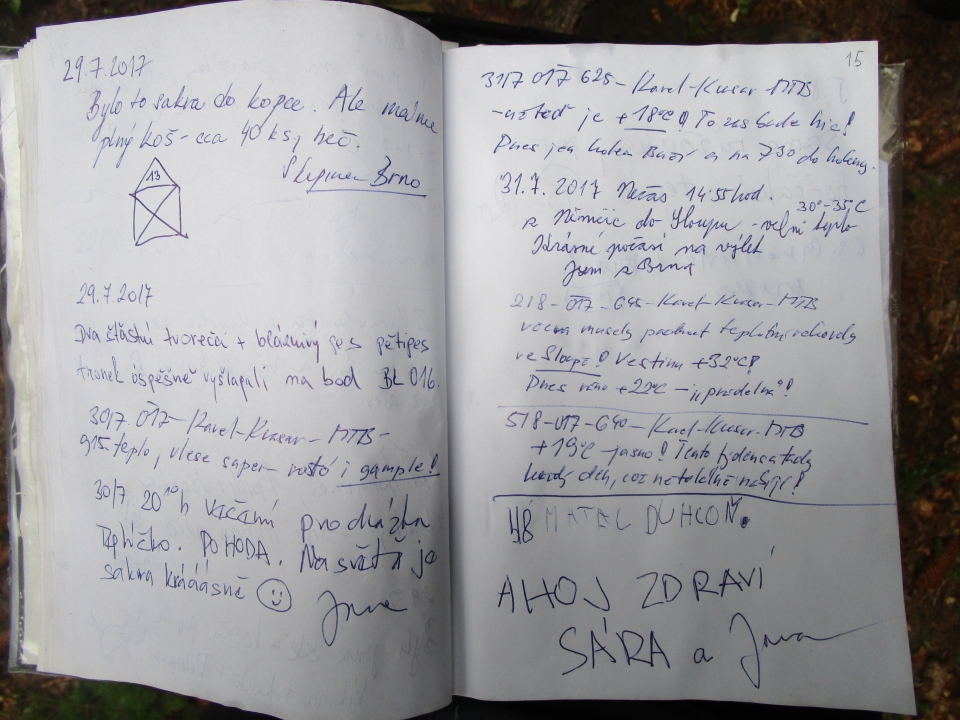 29.7.2017
Bylo to sakra do kopce. Ale máme
plný koš - cca 40 ks, heč.
Brno
13
29.7.2017
Dva šťastní tvorečci + bláznivý pes pětipes
úspěšně vyšlapali na bod BL 016.
30/7 017 - Karel - Kusar - MTB -
915 teplo, vlese super - rostó i gample!
30/7 20¹⁰h Večerní procházka
Teplíčko. POHODA. Na světě je
sakra kráásně
Jana
15
31/7 017 625 - Karel - Kusar - MTB
je +18°C! To zas bude hic!
Dnes jen kolem a na 730 do
31.7.2017 Nečas 14:55 hod.
z Němčic do Sloupu - velmi teplo 30°-35°C
Krásné počasí na výlet
Jsem z Brna
2/8 - 017 - 645 - Karel - Kusar - MTB
vcera padnout teplotni rekordy
ve Sloupe! Vestinu +32°C!
Dnes ráno +22°C
5/8 - 017 - 640 - Karel - Kusar - MTB
+19°C jasno! Tento tyden
kazdy den, coz
48
AHOJ ZDRAVÍ
SÁRA a Jana